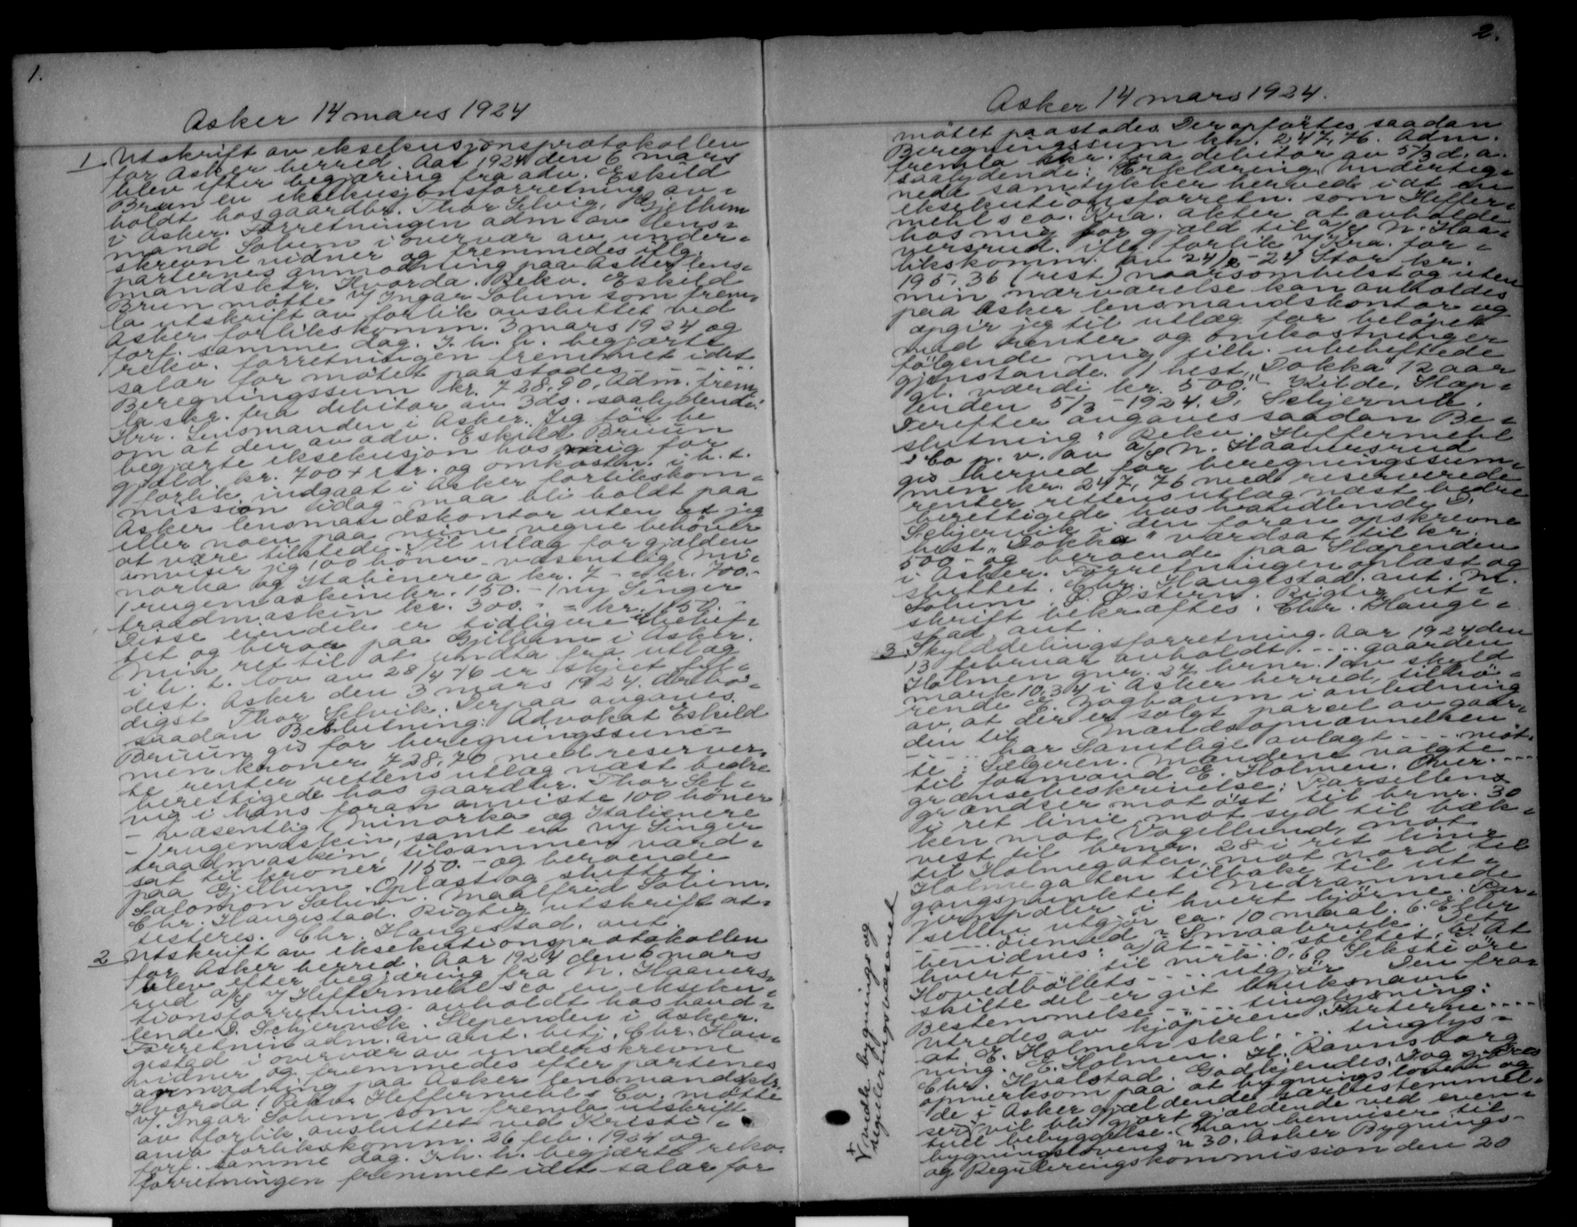 1.
Asker 14 mars 1924
1 Utskrift av eksekusjonsprotokollen
for Asker herred. Aar 1924 den 6 mars
blev efter begjæring fra adv. Eskild
Bruun en eksekusjonsforretning av-
holdt hos gaardbr. Thor Selvig, Gjellum
i Asker. Forretningen adm av lens-
mand Solum i overvær av under-
skrevne vidner og fremmedes iflg.
parternes anmodning paa Asker lens-
mandsktr. Hvorda. Rekv. Eskild
Bruun møtte v/ Ingar Solum som frem-
la utskrift av forlik avsluttet ved
Asker forlikskomm. 3 mars 1924 og
forf. samme dag. I. h. h. begjærte
rekv. forretningen fremmet idet
salær for møtet paastodes - - ...
Beregningssum kr. 728.90. Adm. frem-
la skr. fra debitor av 3ds. saalydende:
Hrr. Lensmanden i Asker. Jeg tør be
om at den av adv. Eskild Bruun
begjærte eksekusjon hos mig for
gjæld kr. 700 + rtr. og omkostn. i h. t.
forlik indgaat i Asker forlikskom-
mission idag - maa bli holdt paa
Asker lensmandskontor uten at jeg
eller noen paa mine vegne behøver
at være tilstede. Til utlæg for gjælden
anviser jeg 100 høner - væsentlig Mi-
norka og Italienere a kr. 7 - kr. 700.-
1 rugemaskin kr. 150.- 1 ny Singer
traadmaskin kr. 300.- = kr. 1150.-
Disse eiendele er tidligere ubehef-
tet og beror paa Gjellum i Asker.
Min ret til at undta fra utlæg
i h. t. lov av 28/4 76 er skjet fyl-
dest. Asker den 3 mars 1924. Ærbø-
digst Thor Selvik. Derpaa avgaves
saadan Beslutning: Advokat Eskild
Bruun gis for beregningssum-
men kroner 728,70 med reserver-
te renter rettens utlæg næst bedre
berettigede hos gaardbr. Thor Sel-
vig i hans foran anviste 100 høner
- væsentlig Minorka og Italienere
- 1 rugemaskin, samt en ny Singer
traadmaskin, tilsammen værd-
sat til kroner 1150.- og beroende
paa Gjellum. Oplæst og sluttet.
Salomon Solum. Maalfrid Solum.
Chr. Haugistad. Rigtig utskrift at-
testeres. Chr. Haugistad. aut
2 Utskrift av eksekutionsprotokollen
for Asker herred. Aar 1924 den 6 mars
blev efter begjæring fra N. Haavers-
rud a/s v/ Heffermehl & co en ekseku-
tionsforretning avholdt hos hand-
lende S. Schjervik. Slependen i Asker.
Forretnin adm. av aut. betj. Chr. Hau-
gistad i overvær av underskrevne
vidner og fremmedes efter partenes
anmodning paa Asker lensmandsktr.
Hvorda: Rekv. Heffermehl & Co. møtte
v/. Ingar Solum som fremla utskrift
av forlik avsluttet ved Kristi-
ania forlikskomm. 26 feb. 1924 og
forf. samme dag. I. h. h. begjærte rekv.
forretningen fremmet idet salær for
2.
Asker 14 mars 1924.
møtet paastodes. Der opførtes saadan
Beregningssum kr. 247,76. Adm.
fremla skr. fra debitor av 5/3 d. a.
saalydende: Erklæring. Underteg-
nede samtykker herved i at en
eksekutionsforretn. som Heffer-
mehl & co. Kra. akter at avholde
hos mig for gjæld til a/s N. Haa-
versrud. iflg forlik v/ Kra. for-
likskomm. av 24/2-24 Stor kr.
195.36 (rest) naarsomhelst og uten
min nærværelse kan avholdes
paa Asker lensmandskontor og
opgir jeg til utlæg for beløpet
med renter og omkostninger
følgende mig tilh. ubeheftede
gjenstande. 1 hest, "Dokka" 12 aar
gl. værdi kr. 500.- Kilde. Slæp-
enden 5/3 - 1924. S. Schjervik.
Derefter avgaves saadan Be-
slutning: Rekv. Heffermehl
& Co p. v. av a/s N. Haaversrud
gis herved for beregningssum-
men kr. 247,76 med reserverede
renter rettens utlæg næst bedre
berettigede hos handlende S.
Schjervik i den foran opskrevne
hest "Dokka" værdsat til kr.
500.- og beroende paa Slæpenden
i Asker. Forretningen oplæst og
sluttet. Chr. Haugistad. aut. M.
Solum. O. Østern. Rigtig ut-
skrift bekræftes. Chr. Haugi-
stad aut.
3 Skylddelingsforretning. Aar 1924 den
13 februar avholdt .... gaarden
Holmen gnr. 27 brnr. 1 av skyld
mark 10,34 i Asker herred, tilhø-
rende E. Zogbaum i anledning
av at der er solgt parcel av gaar-
den til ... Mandsopnævnelsen
... har Samtlige avlagt .... møt-
te ... Sælgeren. Mændene valgte
til formand E. Holmen. Over ....
grænsebeskrivelse: Parsellens
grændser mot øst til brnr. 30
i ret linie mot syd til bæk-
ken mot Vogellund, mot
vest til brnr. 28 i ret linie
til Holmegaten, mot nord til
Holmegaten tilbake til ut-
gangspunktet. Nedrammede
jernpæler i hvert hjørne. Par-
sellen utgjør ca. 10 maal. 6. Efter
.... øiemed = Smaabruk. Det
bevidnes: a/ At .... skiltet. b/ At
hvert ... til mrk. 0,60 Seksti øre
Hovedbøllets .... utgjør Den fra-
skilte del er git bruksnavn
Bestemmelse .... tinglysning:
Utredes av kjøperen. Parterne ....
at E. Holmen skal .... tinglys-
ning. E. Holmen. H. Ravnsborg
Chr. Hvalstad. Godkjendes, dog gjøres
opmerksom paa at bygningsloven og
de i Asker gjældende særbestemmel-
ser vil bli gjort gjældende ved even-
tuel bebyggelse. Man henviser til
bygningslovens § 30. Asker Bygnings-
og Reguleringskommission den 20
+ vedk. bygnings og
reguleringsvæsenet